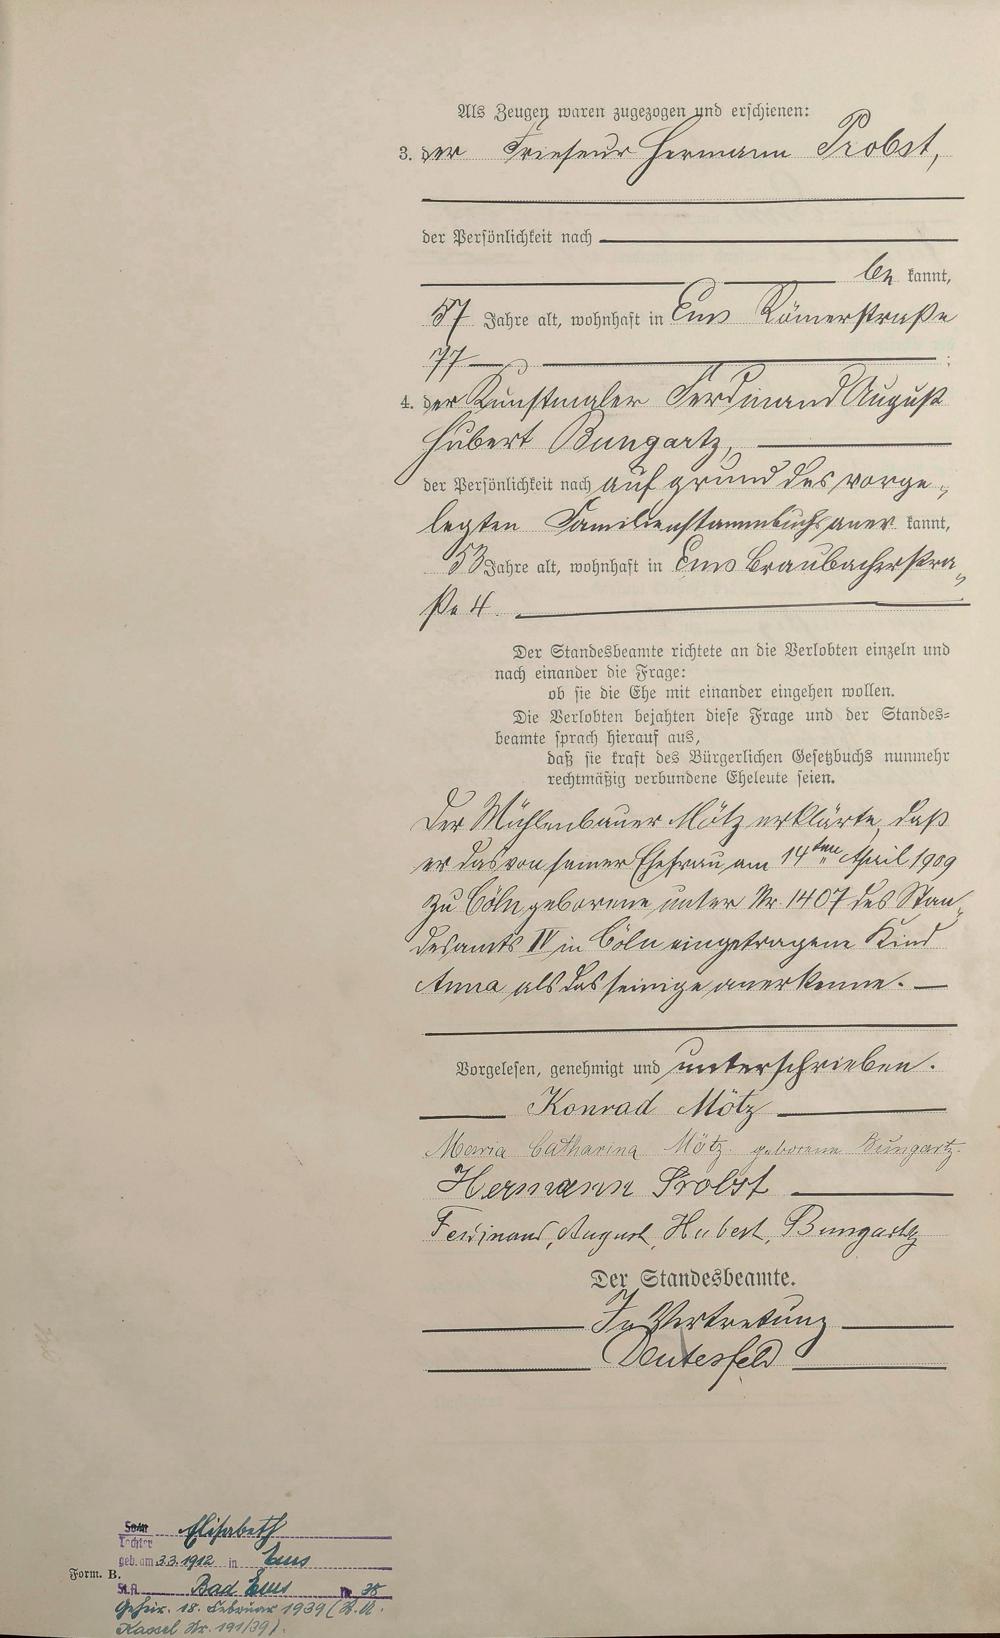 Als Zeugen waren zugezogen und erschienen:
3. der Friseur Hermann Probst,
der Persönlichkeit nach
be kannt,
57 Jahre alt, wohnhaft in Ems Römerstraße
77
4. der Kunstmaler Ferdinand August
Hubert Bungartz,
der Persönlichkeit nach auf grund des vorge-
legten Familienstammbuchs aner kannt,
53 Jahre alt, wohnhaft in Ems Braubacherstra-
ße 4.
Der Standesbeamte richtete an die Verlobten einzeln und
nach einander die Frage:
ob sie die Ehe mit einander eingehen wollen.
Die Verlobten bejahten diese Frage und der Standes-
beamte sprach hierauf aus,
daß sie kraft des Bürgerlichen Gesetzbuchs nunmehr
rechtmäßig verbundene Eheleute seien.
Der Mühlenbauer Mötz erklärte, daß
er das von seiner Ehefrau am 14ten April 1909
zu Cöln geborene unter Nr. 1407 des Stan-
desamts IV in Cöln eingetragene Kind
Anna als das seinige anerkenne.
Vorgelesen, genehmigt und unterschrieben.
Konrad Mötz
Maria Catharina Mötz geborene Bungartz.
Hermann Probst
Ferdinand, August, Hubert, Bungartz
Der Standesbeamte.
In Vertretung
Deutesfeld
Sohn Elisabeth
Tochter
geb. am 3.3.1912 in Ems
Form. B.
St.A. Bad Ems Nr. 38
Geheir. 18. Februar 1939 (St.A.
Kassel Nr. 191/39).